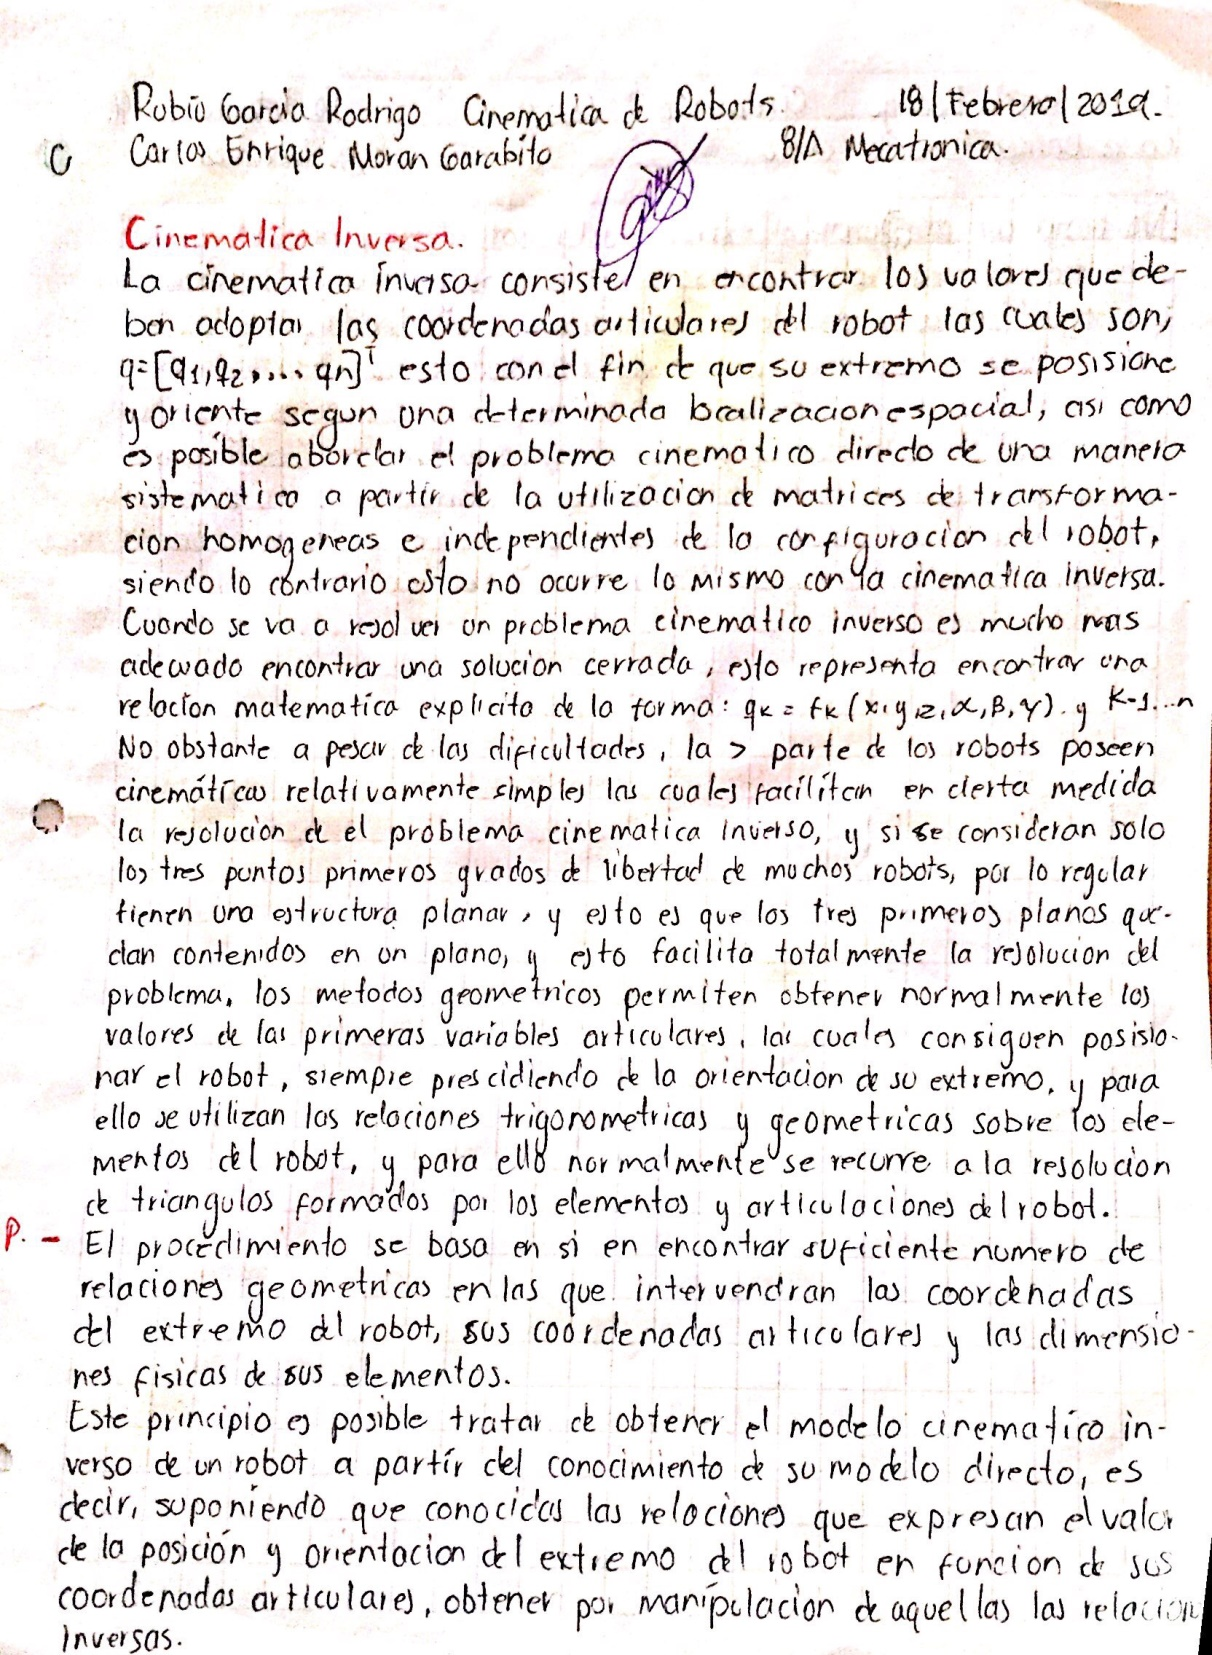 Rubio Garcia Rodrigo Cinematica de Robots. 18/Febrero/2019.
Carlos Enrique Moran Garabito 8/A Mecatronica.
Cinematica Inversa.
La cinematica inversa consiste en encontrar los valores que de-
ben adoptar las coordenadas articulares del robot las cuales son,
q=[q1,q2,... qn]ᵀ esto con el fin de que su extremo se posisione
y oriente segun una determinada localizacion espacial, asi como
es posible abordar el problema cinematico directo de una manera
sistematica a partir de la utilizacion de matrices de transforma-
cion homogeneas e independientes de la configuracion del robot,
siendo lo contrario esto no ocurre lo mismo con la cinematica inversa.
Cuando se va a resolver un problema cinematico inverso es mucho mas
adecuado encontrar una solucion cerrada, esto representa encontrar una
relacion matematica explicita de la forma: qk = fk (x,y,z,α,β,γ). y K-1...n
No obstante a pesar de las dificultades, la > parte de los robots poseen
cinemáticas relativamente simples las cuales facilitan en cierta medida
la resolucion de el problema cinematica inverso, y si se consideran solo
los tres puntos primeros grados de libertad de muchos robots, por lo regular
tienen una estructura planar, y esto es que los tres primeros planos que-
dan contenidos en un plano, y esto facilita totalmente la resolucion del
problema, los metodos geometricos permiten obtener normalmente los
valores de las primeras variables articulares, las cuales consiguen posisio-
nar el robot, siempre prescidiendo de la orientacion de su extremo, y para
ello se utilizan las relaciones trigonometricas y geometricas sobre los ele-
mentos del robot, y para ello normalmente se recurre a la resolucion
de triangulos formados por los elementos y articulaciones del robot.
P. - El procedimiento se basa en si en encontrar suficiente numero de
relaciones geometricas en las que intervendran las coordenadas
del extremo del robot, sus coordenadas articulares y las dimensio-
nes fisicas de sus elementos.
Este principio es posible tratar de obtener el modelo cinematico in-
verso de un robot a partir del conocimiento de su modelo directo, es
decir, suponiendo que conocidas las relaciones que expresan el valor
de la posición y orientacion del extremo del robot en funcion de sus
coordenadas articulares, obtener por manipulacion de aquellas las relacion
Inversas.